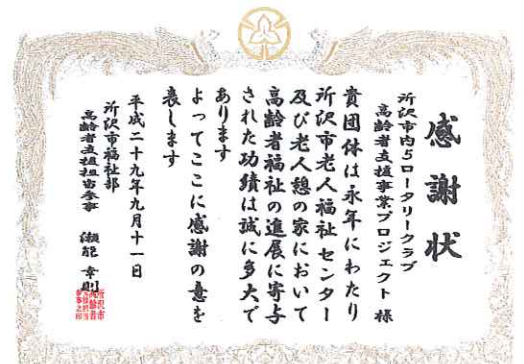 感謝状
所沢市内5ロータリークラブ
高齢者支援事業プロジェクト 様
貴団体は永年にわたり
所沢市老人福祉センター
及び老人憩の家において
高齢者福祉の進展に寄与
された功績は誠に多大で
あります
よってここに感謝の意を
表します
平成二十九年九月十一日
所沢市福祉部
高齢者支援担当参事 瀬能 幸則